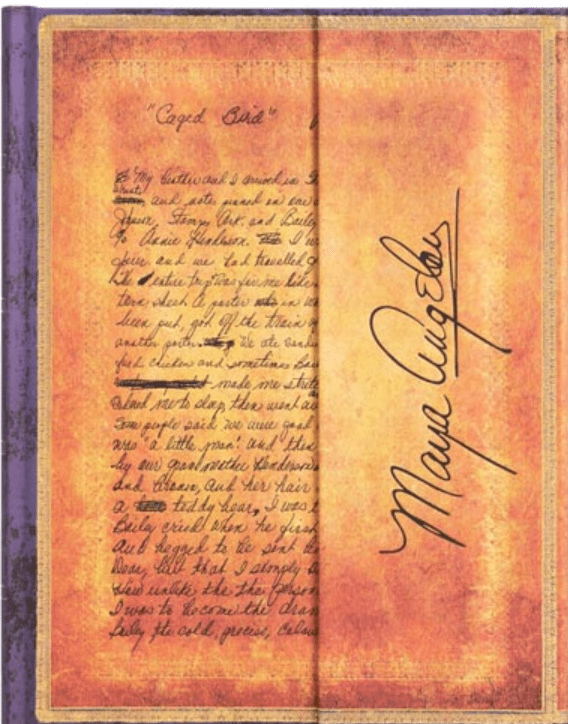 "Caged Bird"
My brother and I arrived in
and notes pinned on our
Stamps, Ark. and Bailey
To Annie Henderson. I w
and we had travelled
entire trip was for me like
a porter in
been put, got off the train
another porter. We ate
fried chicken and sometimes
made me
me to sleep, then went
Some people said we were good
was "a little man". And then
by our grandmother Henderson
and Brown, and her hair
a teddy bear, I was
Bailey cried when he first
And begged to be sent
Dear, but that I simply
unlike the person
I was to become the
Bailey, the cold,
Maya Angelou